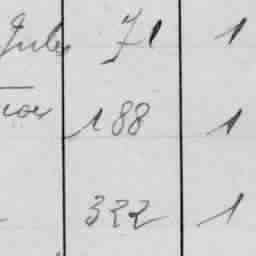 Jules 71 1
188 1
322 1